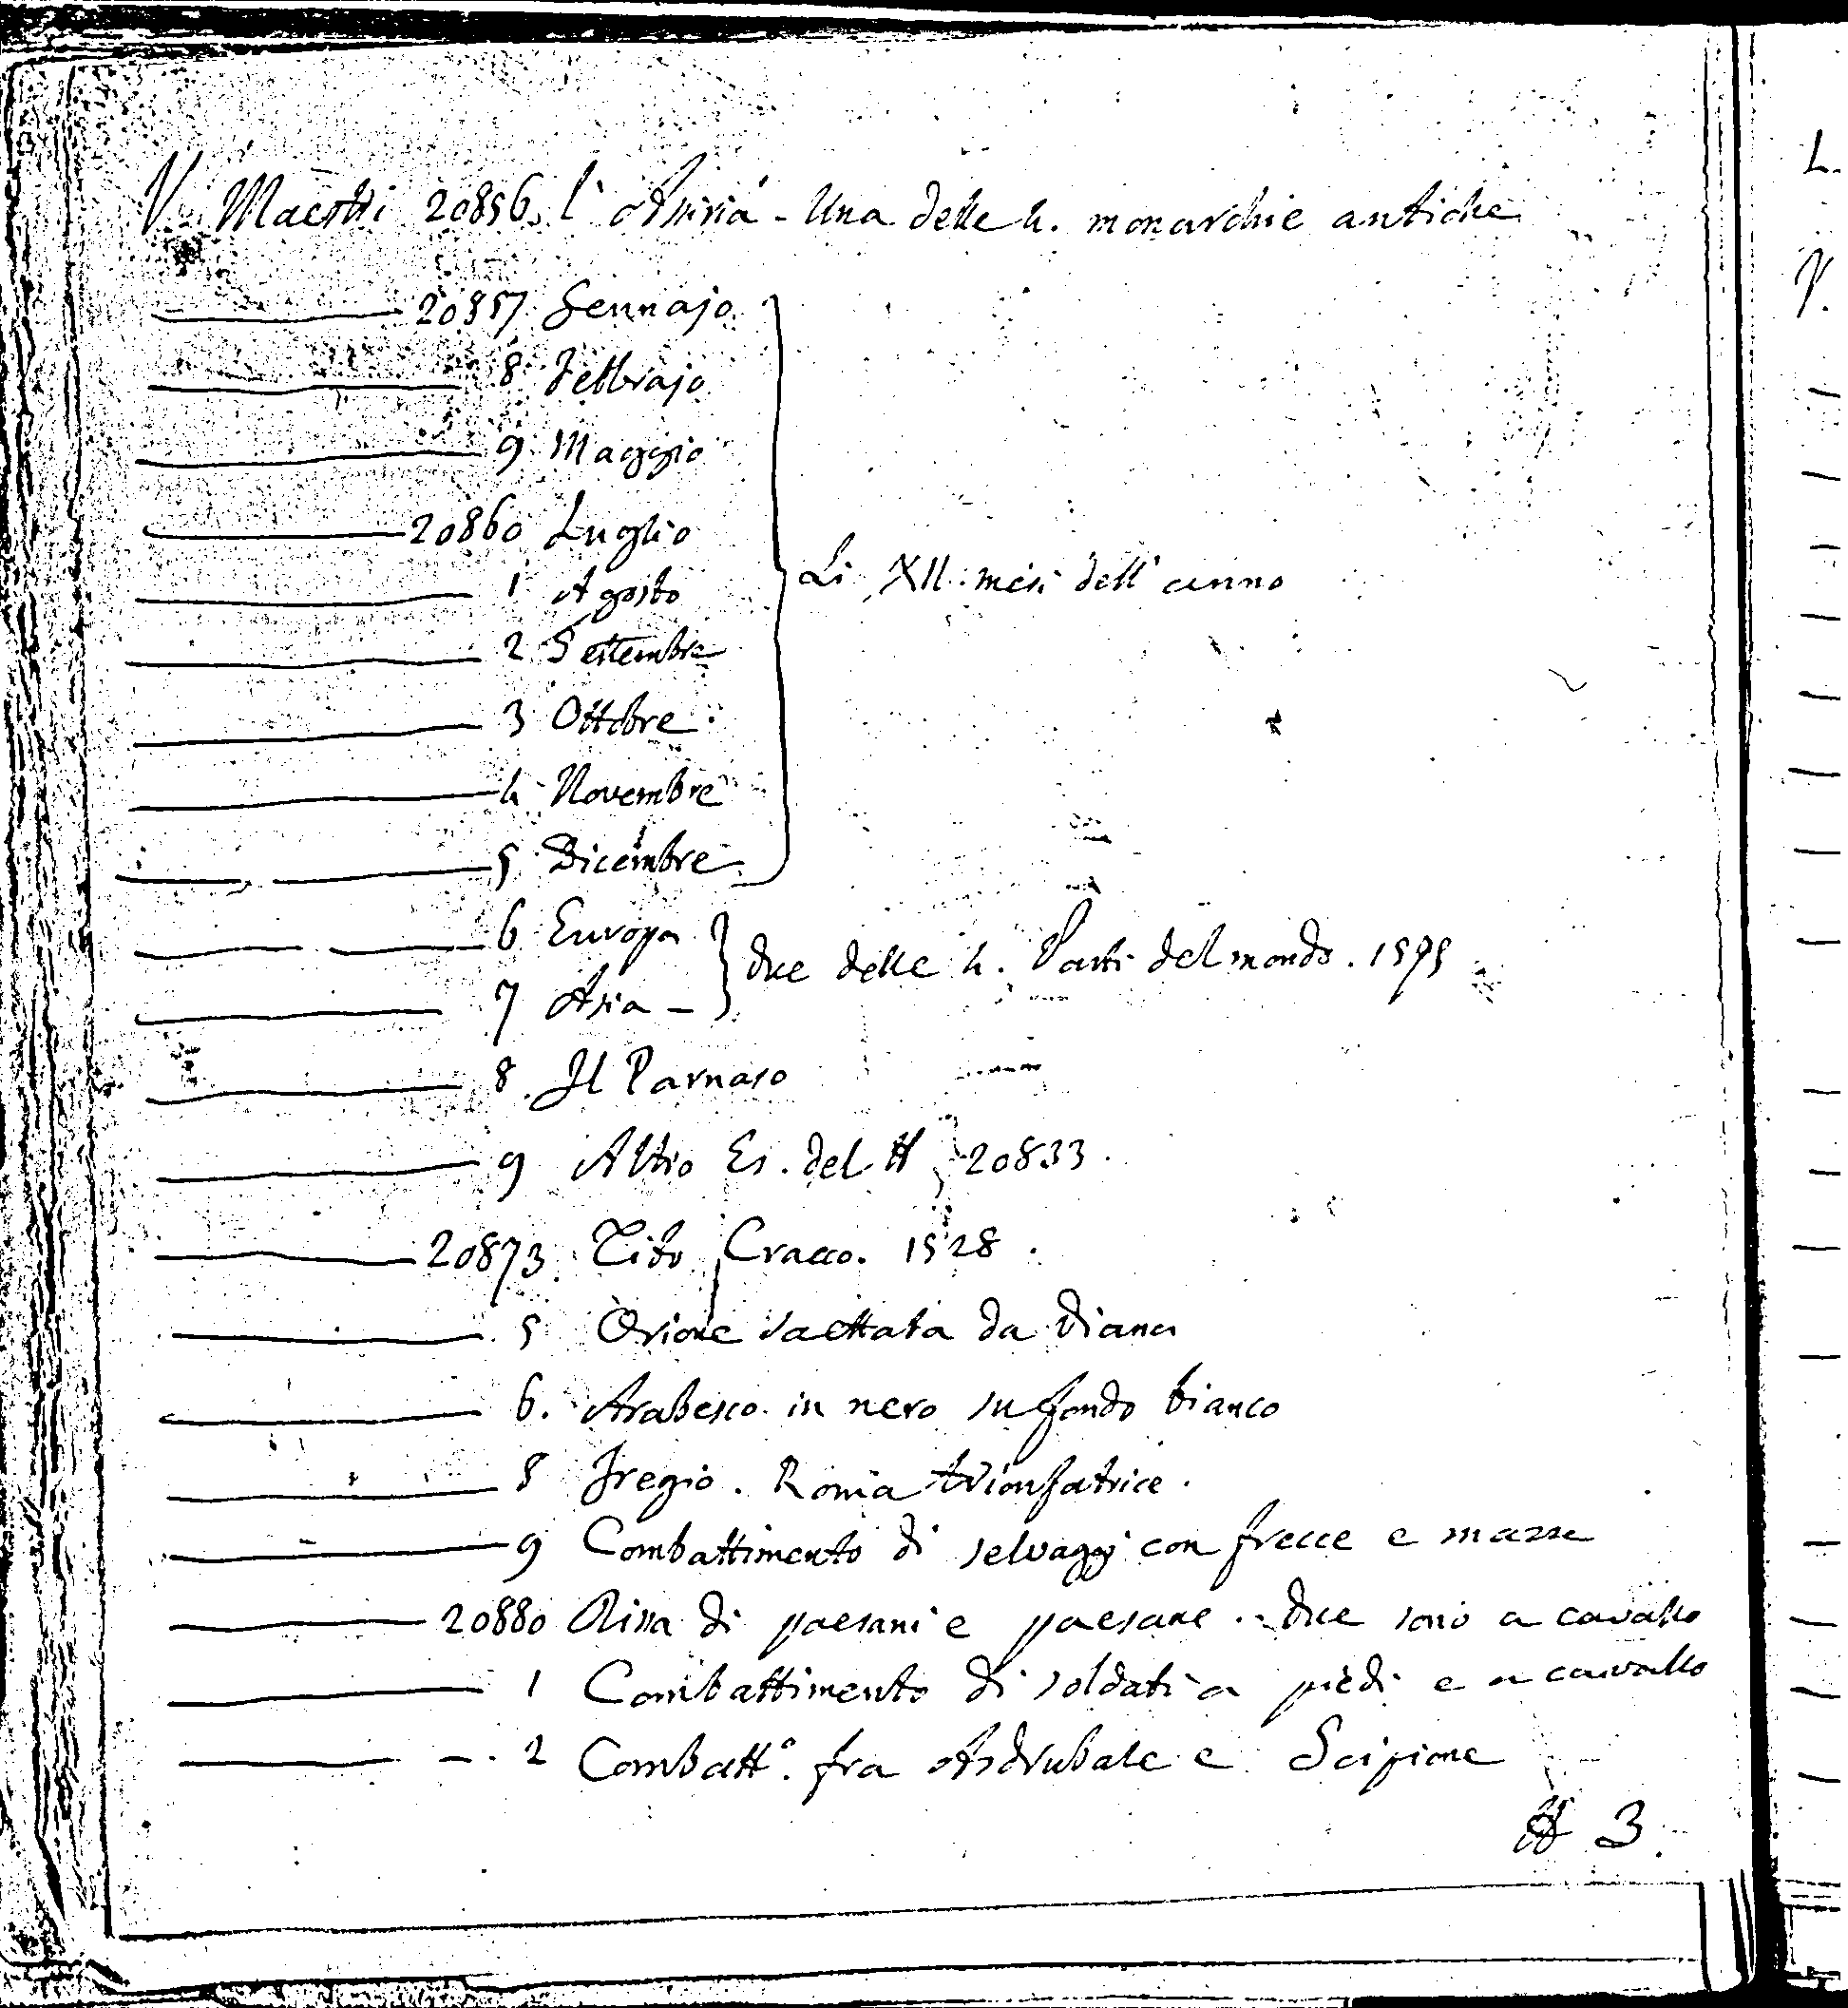 V. Maestri 20856. l'Assiria - Una delle 4. monarchie antiche
20857 Gennajo
8 Febbrajo
9 Maggio
20860 Luglio
1 Agosto
2 Settembre
3 Ottobre
Li XII. mesi dell'anno
4 Novembre
5 Dicembre
6 Europa
7 Asia -
due delle 4. Parti del mondo. 1595
8 Il Parnaso
9 Altro Es. del # 20833.
20873. Tito Gracco. 1528.
5 Orione saettata da Diana
6. Arabesco in nero su fondo bianco
8 Fregio. Roma trionfatrice.
9 Combattimento di selvaggi con frecce e mazze
20880 Rissa di paesani e paesane. due sono a cavallo
1 Combattimento di soldati a piedi e a cavallo
2 Combatt.° fra Asdrubale e Scipione
# 3.
L.
V.